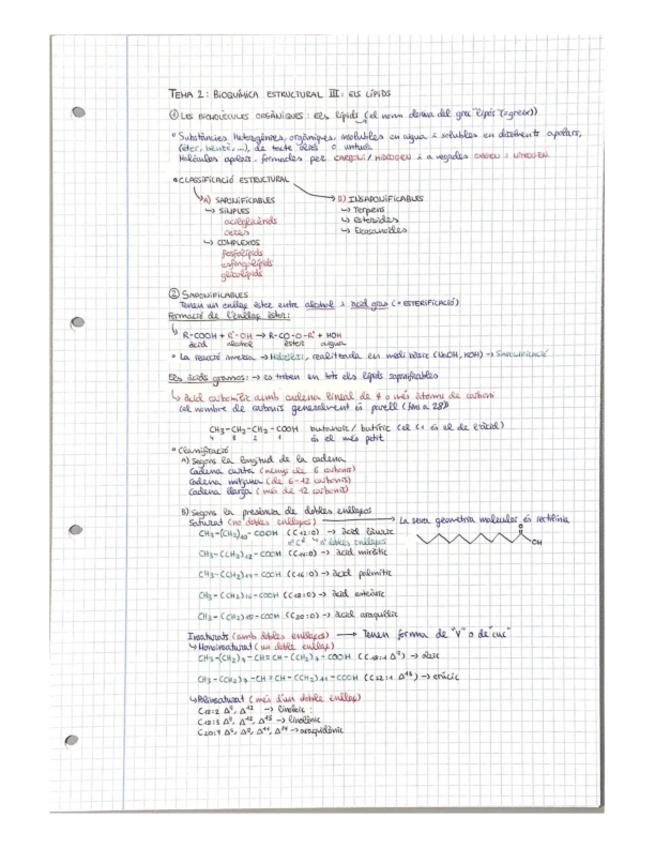 TEMA 2: BIOQUÍMICA ESTRUCTURAL III: ELS LÍPIDS
① LES BIOMOLÈCULES ORGÀNIQUES: els lípids (el nom deriva del grec "lipos" (greix))
• Substàncies heterogènies, orgàniques, insolubles en aigua i solubles en dissolvents apolars,
(èter, benzè, ...), de tacte oliós o untuós
Molècules apolars, formades per CARBONI / HIDROGEN i a vegades OXIGEN i NITROGEN
• CLASSIFICACIÓ ESTRUCTURAL
A) SAPONIFICABLES
↳ SIMPLES
acilglicèrids
ceres
↳ COMPLEXOS
fosfolípids
esfingolípids
glicolípids
B) INSAPONIFICABLES
↳ Terpens
↳ Esteroides
↳ Eicosanoides
② SAPONIFICABLES
Tenen un enllaç èster entre alcohol i àcid gras (= ESTERIFICACIÓ)
Formació de l'enllaç èster:
↳ R-COOH + R'-OH → R-CO-O-R' + HOH
àcid alcohol èster aigua
• La reacció inversa → Hidròlisi, realitzada en medi bàsic (NaOH, KOH) → SAPONIFICACIÓ
Els àcids grassos: → es troben en tots els lípids saponificables
↳ àcid carboxílic amb cadena lineal de 4 o més àtoms de carboni
(el nombre de carbonis generalment és parell (fins a 28))
CH₃-CH₂-CH₂-COOH butanoic / butíric (el C1 és el de l'àcid)
4 3 2 1 és el més petit
• Classificació
A) Segons la longitud de la cadena
Cadena curta (menys de 6 carbonis)
Cadena mitjana (de 6-12 carbonis)
Cadena llarga (més de 12 carbonis)
B) Segons la presència de dobles enllaços
Saturat (no dobles enllaços) → La seva geometria molecular és rectilínia
CH₃-(CH₂)₁₀-COOH (C12:0) → àcid làuric
nº C nº dobles enllaços
O
OH
CH₃-(CH₂)₁₂-COOH (C14:0) → àcid mirístic
CH₃-(CH₂)₁₄-COOH (C16:0) → àcid palmític
CH₃-(CH₂)₁₆-COOH (C18:0) → àcid esteàric
CH₃-(CH₂)₁₈-COOH (C20:0) → àcid araquídic
Insaturats (amb dobles enllaços) → Tenen forma de "V" o de "cuc"
↳ Monoinsaturat (un doble enllaç)
CH₃-(CH₂)₇-CH=CH-(CH₂)₇-COOH (C18:1 Δ⁹) → oleic
CH₃-(CH₂)₇-CH=CH-(CH₂)₁₁-COOH (C22:1 Δ¹³) → erúcic
↳ Poliinsaturat (més d'un doble enllaç)
C18:2 Δ⁹, Δ¹² → linoleic
C18:3 Δ⁹, Δ¹², Δ¹⁵ → linolènic
C20:4 Δ⁵, Δ⁸, Δ¹¹, Δ¹⁴ → araquidònic